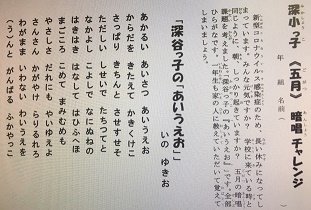 深小っ子 《五月》 暗唱 チャレンジ
年 組 名前（
新型コロナウイルス感染症のため、長い休みになってし
まっています。みんな元気ですか？ 学校に来ている時と
同じように、朝、しっかり起きていますか？ 五月の暗唱
課題を考えました。「深谷っ子の『あいうえお』」です。全部
ひらがなです。一年生も家の人に教えていただいて覚えて
しまいましょう。
「深谷っ子の「あいうえお」」
いの ゆきお
あかるい あいさつ あいうえお
からだを きたえて かきくけこ
さっぱり きちんと さしすせそ
ただしい しせいで たちつてと
なかよし こよしで なにぬねの
はきはき はなして はひふへほ
まごころ こめて まみむめも
やさしさ だれにも やいゆえよ
らんらん かがやけ らりるれろ
わがまま いわない わいうえを
（う）んと がんばる ふかやっこ